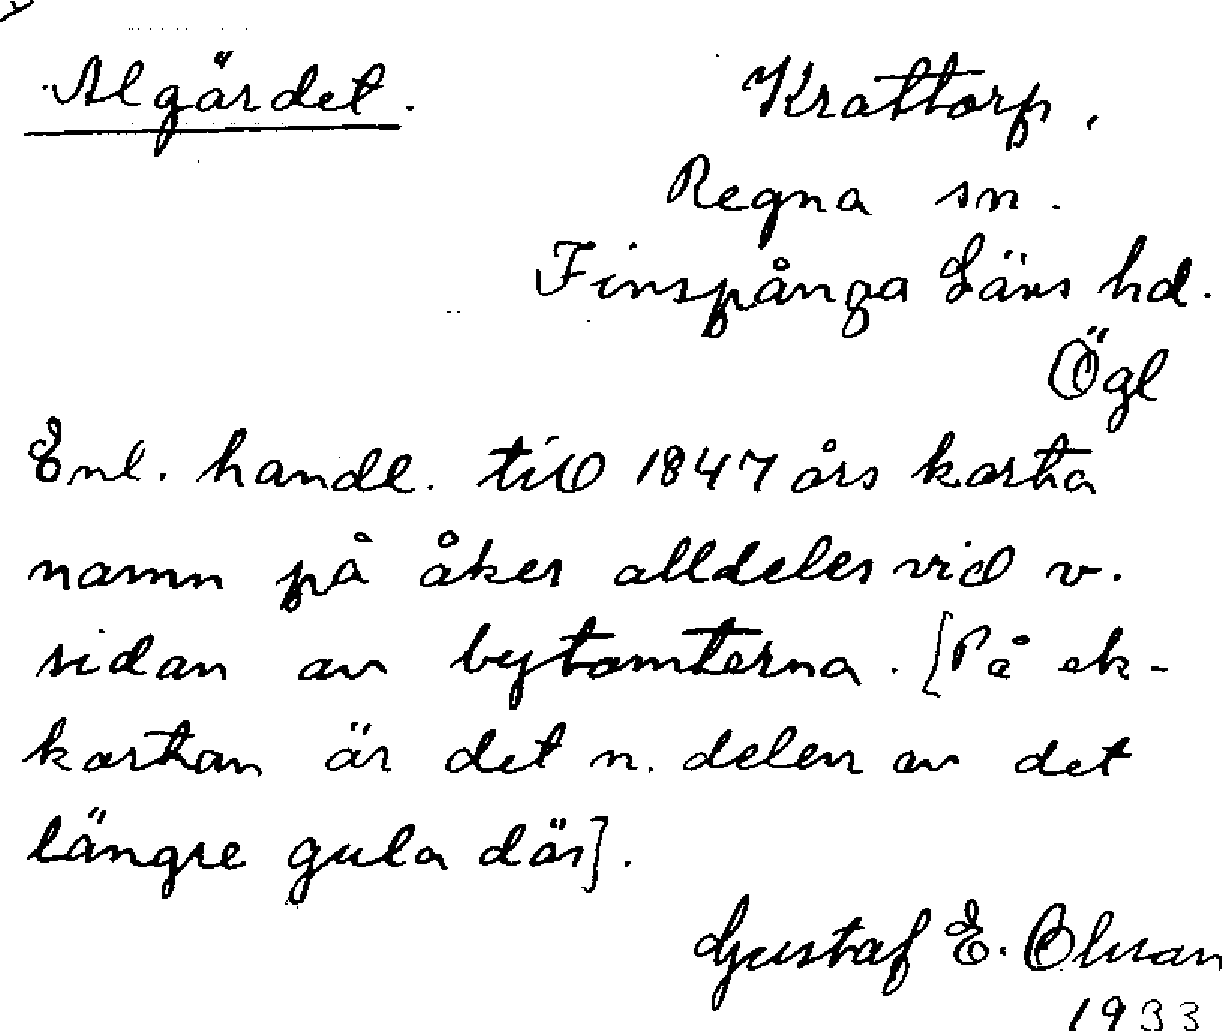 Algärdet.
Krattorp,
Regna sn.
Finspånga Läns hd.
Ögl
Enl. handl. till 1847 års karta
namn på åker alldeles vid v.
sidan av bytomterna. [På ek-
kartan är det n. delen av det
längre gula där].
Gustaf E. Olsson
1933